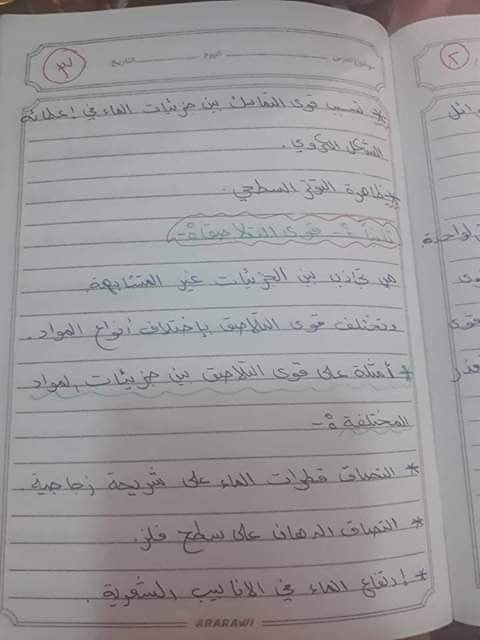 موضوع الدرس اليوم التاريخ
٣
* تسبب قوى التماسك بين جزيئات الماء في إعطائه
الشكل الكروي.
* ظاهرة التوتر السطحي.
ثانياً :- قوى التلاصق :-
هي تجاذب بين الجزيئات غير المتشابهة.
وتختلف قوى التلاصق بإختلاف أنواع المواد.
* أمثلة على قوى التلاصق بين جزيئات المواد
المختلفة :-
* التصاق قطرات الماء على شريحة زجاجية
* التصاق الدهان على سطح فلز.
* إرتفاع الماء في الانابيب الشعرية.
ARARAWI
٢